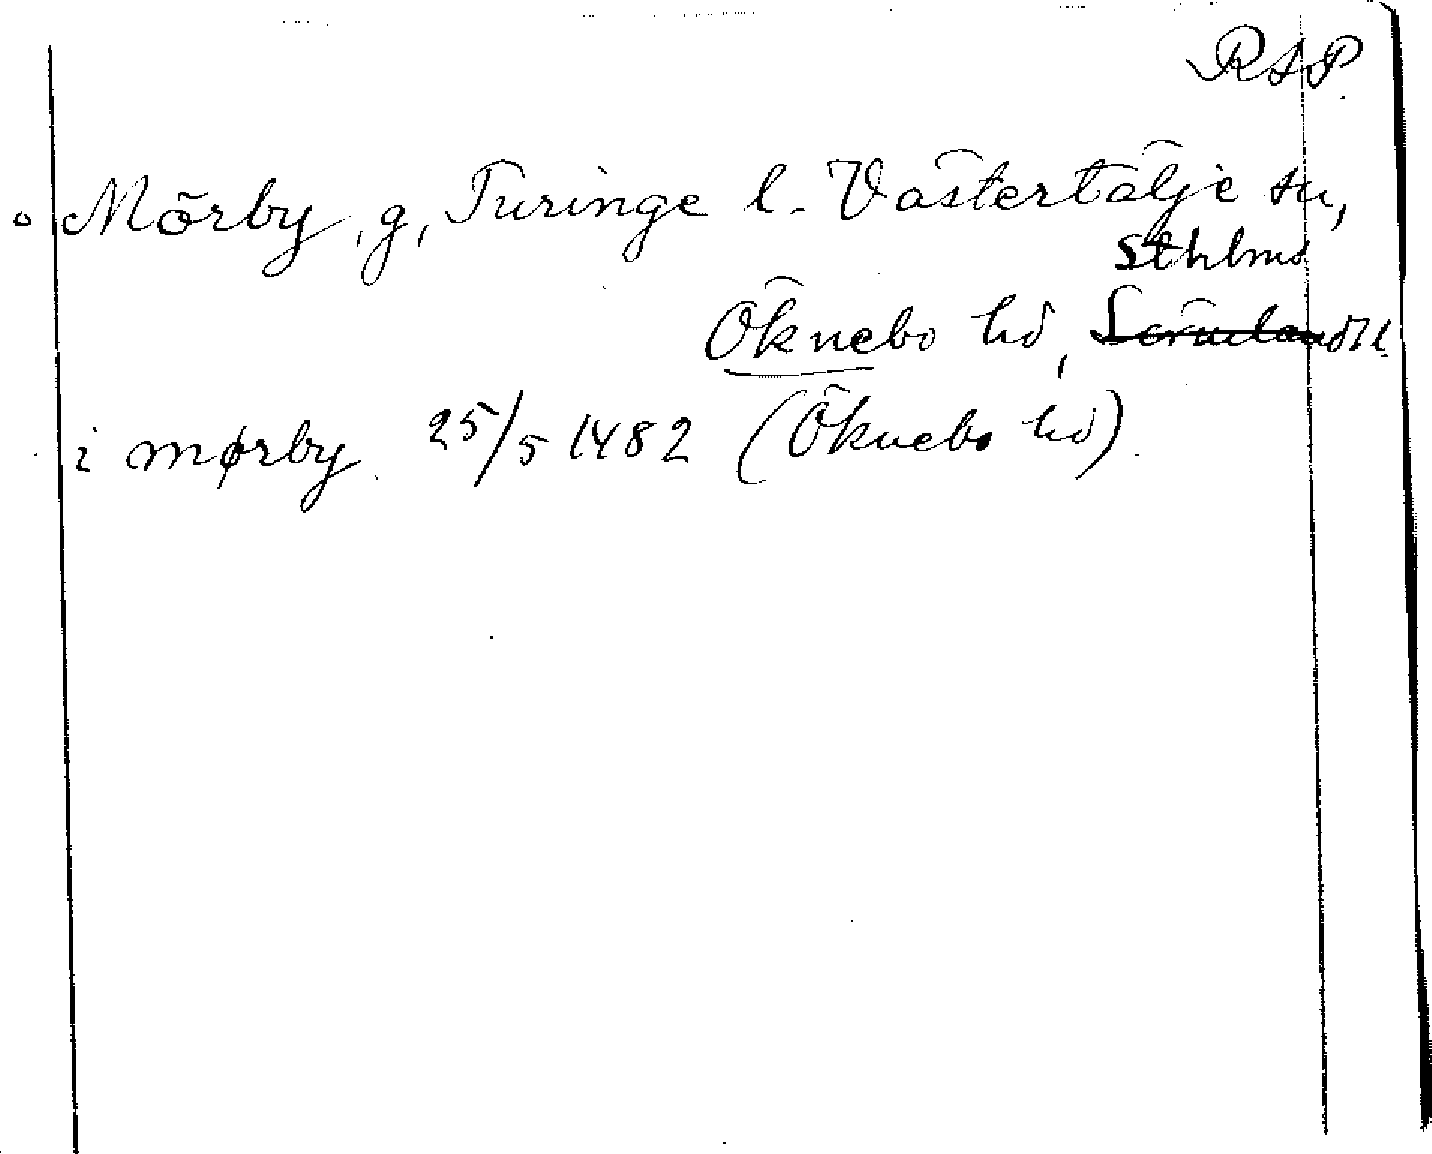 RAP.
Mörby, g, Turinge l. Västertälje sn,
Sthlms
Öknebo hd, Södermanlands l.
i mørby 25/5 1482 (Öknebo hd)